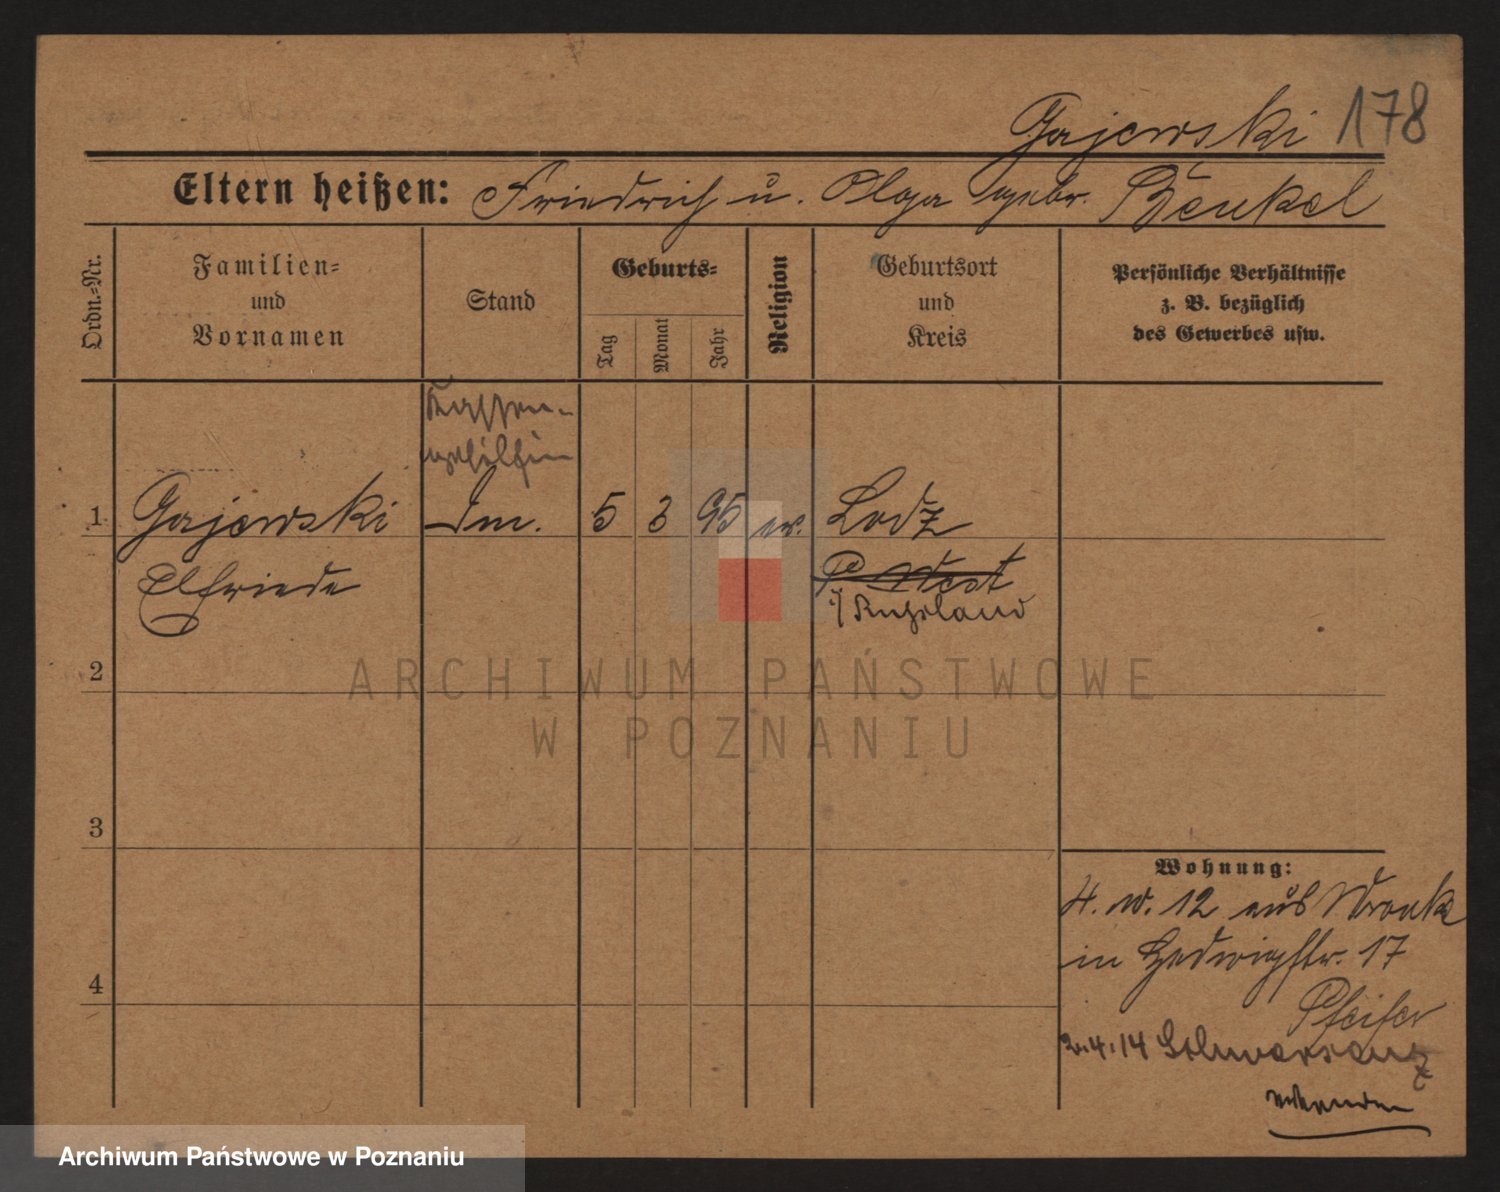 Gajewski 178
Eltern heißen: Friedrich u. Olga gebr. Benkel
Ordn.-Nr.
Familien-
und
Vornamen
Stand
Geburts-
Tag
Monat
Jahr
Religion
Geburtsort
und
Kreis
Persönliche Verhältnisse
z. B. bezüglich
des Gewerbes usw.
Kassen-
gehilfin
1 Gajewski 5 3 95 ev. Lodz
Elfriede
i/ Rußland
2
ARCHIWUM PAŃSTWOWE
W POZNANIU
3
Wohnung:
4. 10. 12 aus Wronke
in Hedwigstr. 17
4
Pfeifer
2.4.14 Schwersenz
Archiwum Państwowe w Poznaniu